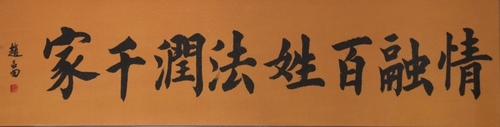 情融百姓法潤千家